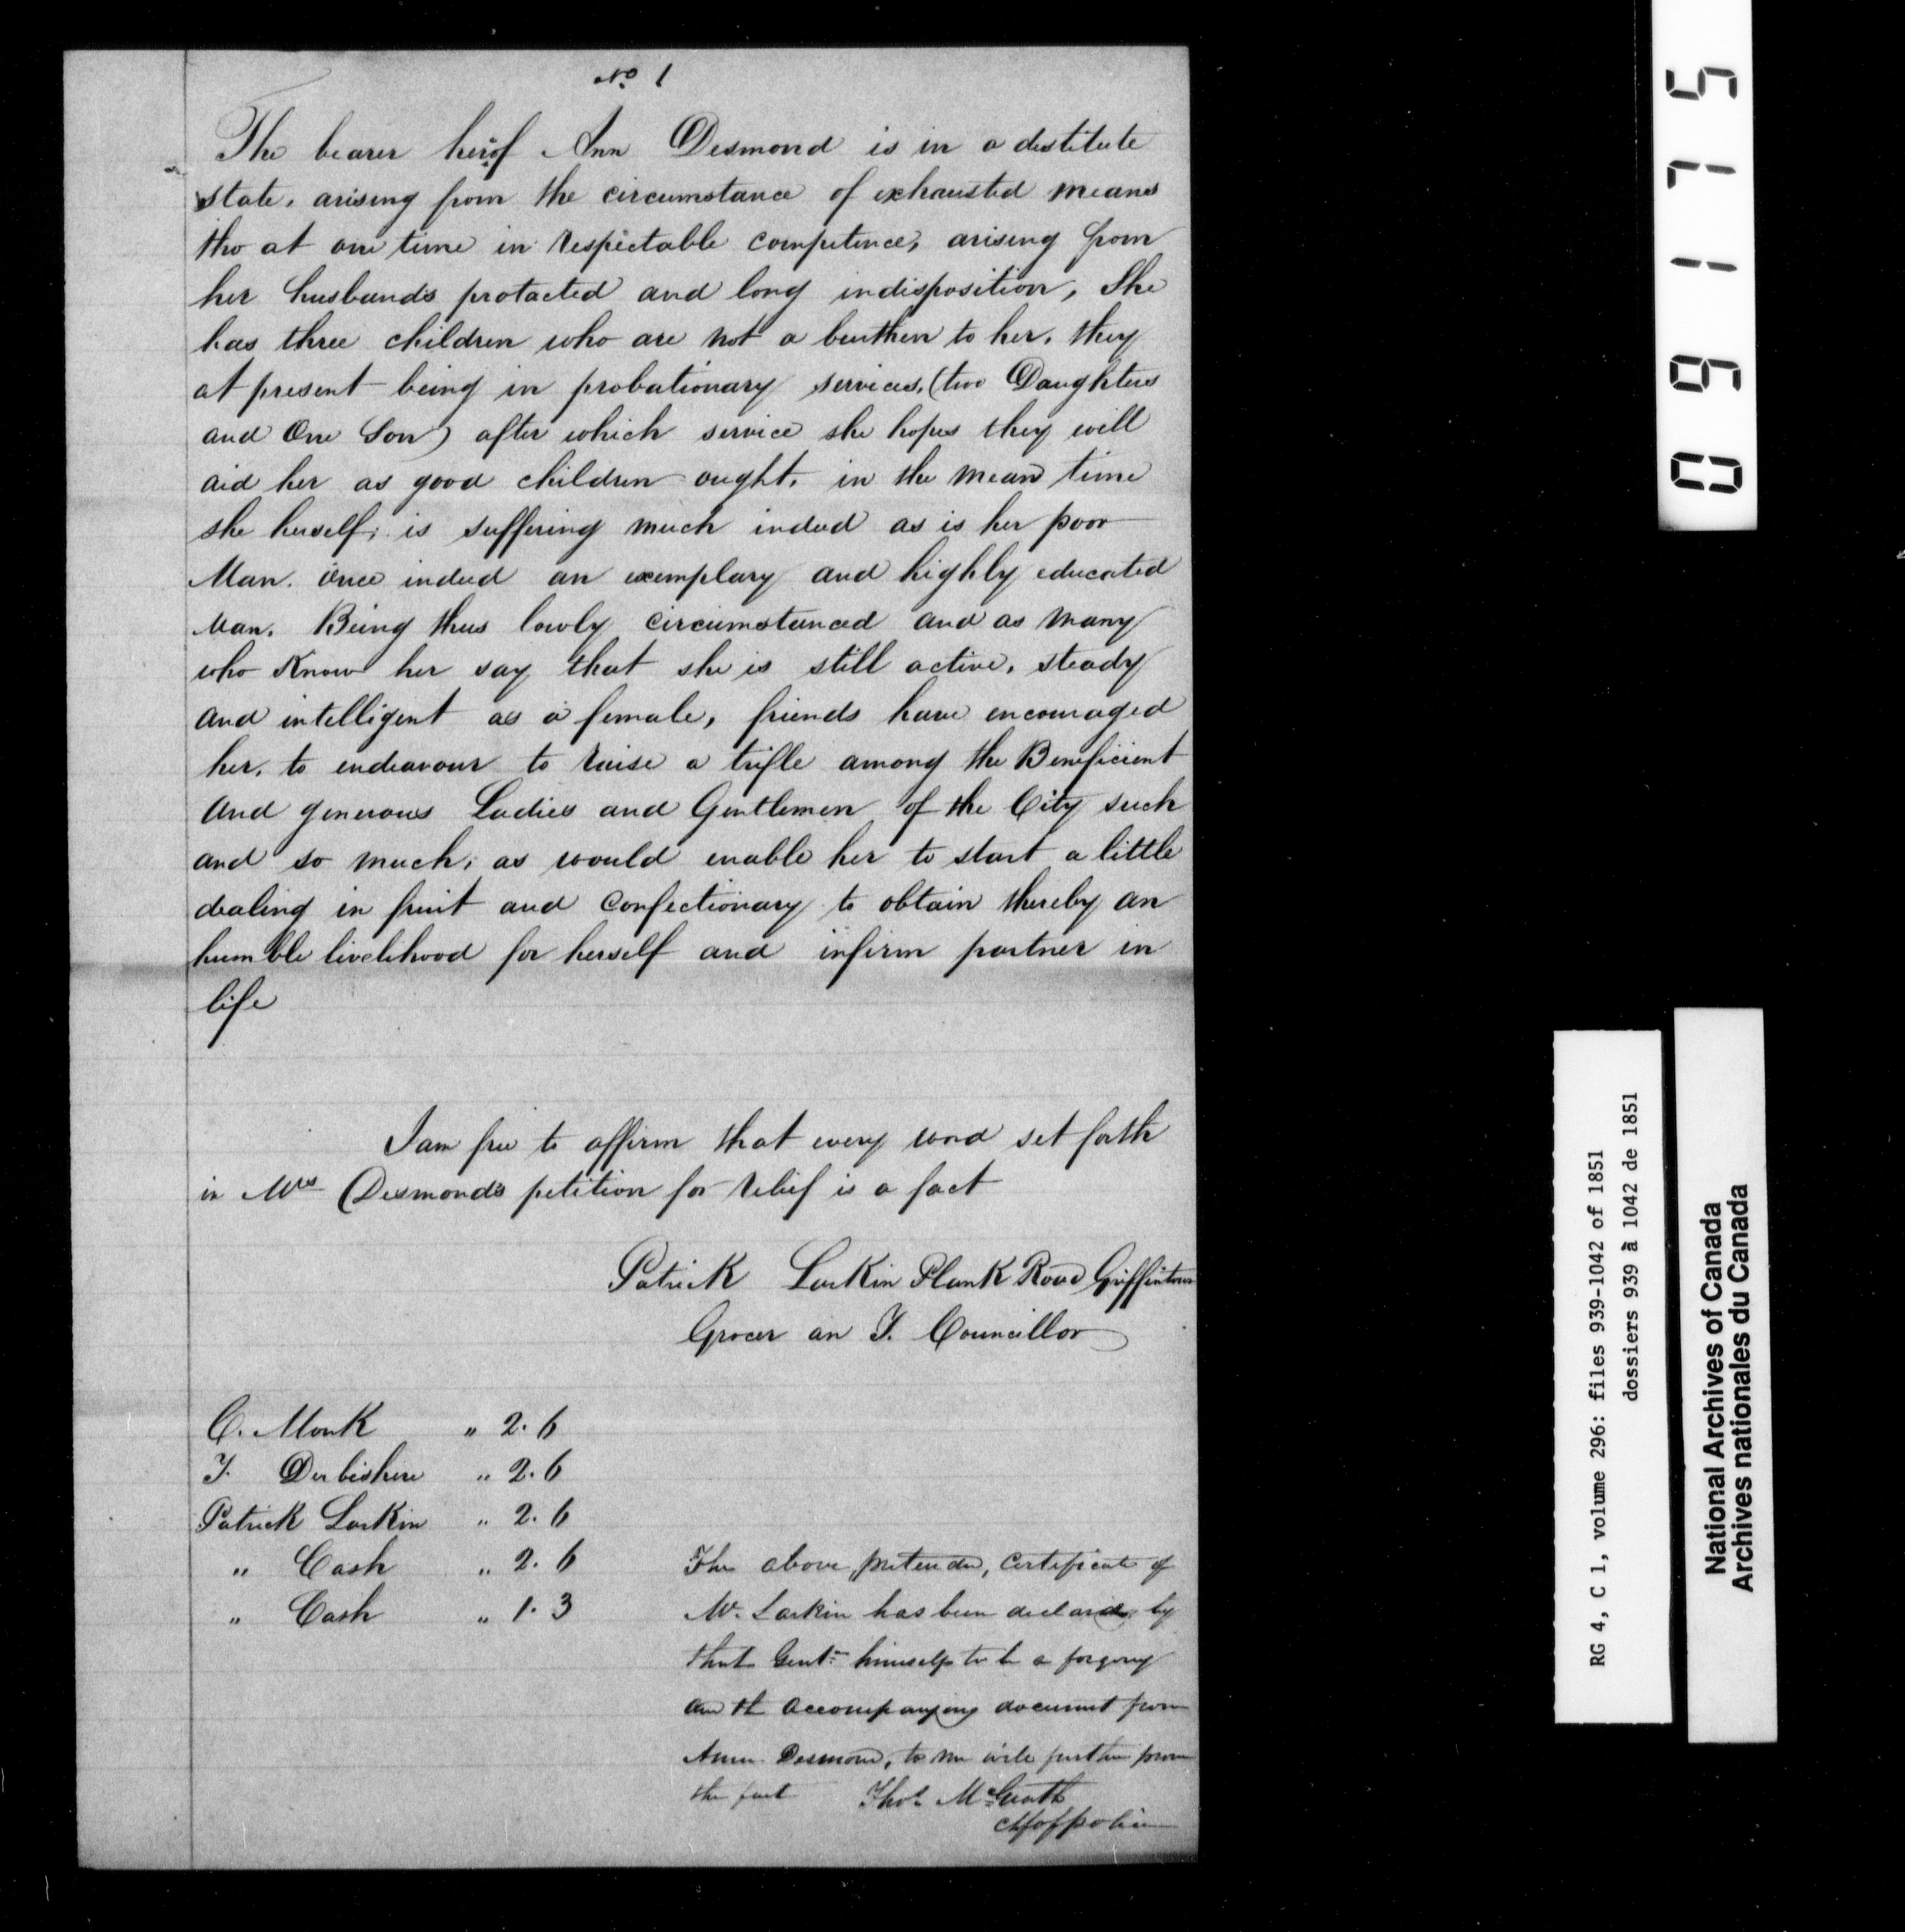 No. 1
The bearer herof Ann Desmond is in a destitute
state, arising from the circumstance of exhausted means
tho at one time in respectable competence, arising from
her husbands protacted and long indisposition, She
has three children who are not a burthen to her, they
at present being in probationary services, (two Daughters
and One Son) after which service she hopes they will
aid her as good children ought, in the mean time
she herself, is suffering much indeed as is her poor
Man. Once indeed an exemplary and highly educated
Man. Being thus lowly circumstanced and as many
who Know her say that she is still active, steady
and intelligent as a female, friends have encouraged
her, to endeavour to raise a trifle among the Beneficient
and generous Ladies and Gentlemen of the City such
and so much, as would enable her to start a little
dealing in fruit and Confectionary to obtain thereby an
humble livelihood for herself and infirm partner in
life
I am free to affirm that every word set forth
in Mrs Desmond's petition for relief is a fact
Patrick Larkin Plank Road Griffintown
Grocer an T. Councillor
C. Monk " 2. 6
T. Derbishire " 2. 6
Patrick Larkin " 2. 6
" Cash " 2. 6
" Cash " 1. 3
The above, pretended, Certificate of
Mr. Larkin has been declared by
that Gentn himself to be a forgery
and the accompanying document from
Ann Desmond, to me will further prove
the fact Thos McGrath
Ch of police
09175
RG 4, C 1, volume 296: files 939-1042 of 1851
dossiers 939 à 1042 de 1851
National Archives of Canada
Archives nationales du Canada